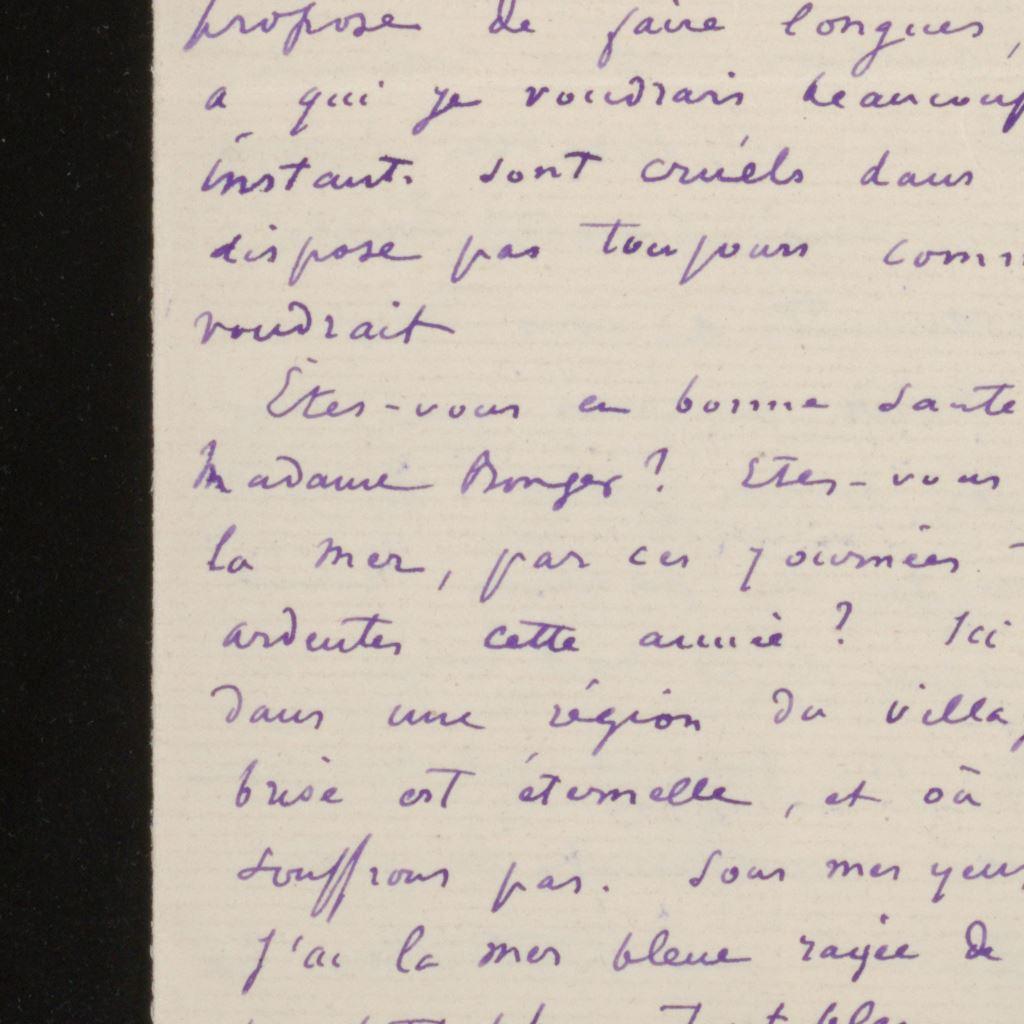 propose de faire longues,
a qui je voudrais beaucoup
instants sont cruels dans
dispose pas toujours comm
voudrait
Êtes-vous en bonne santé
Madame Bonger? Etes-vous
la mer, par ces journées
ardentes cette année? Ici
dans une région du villag
brise est éternelle, et où
souffrons pas. Sous mes yeux
j'ai la mer bleue rayée de